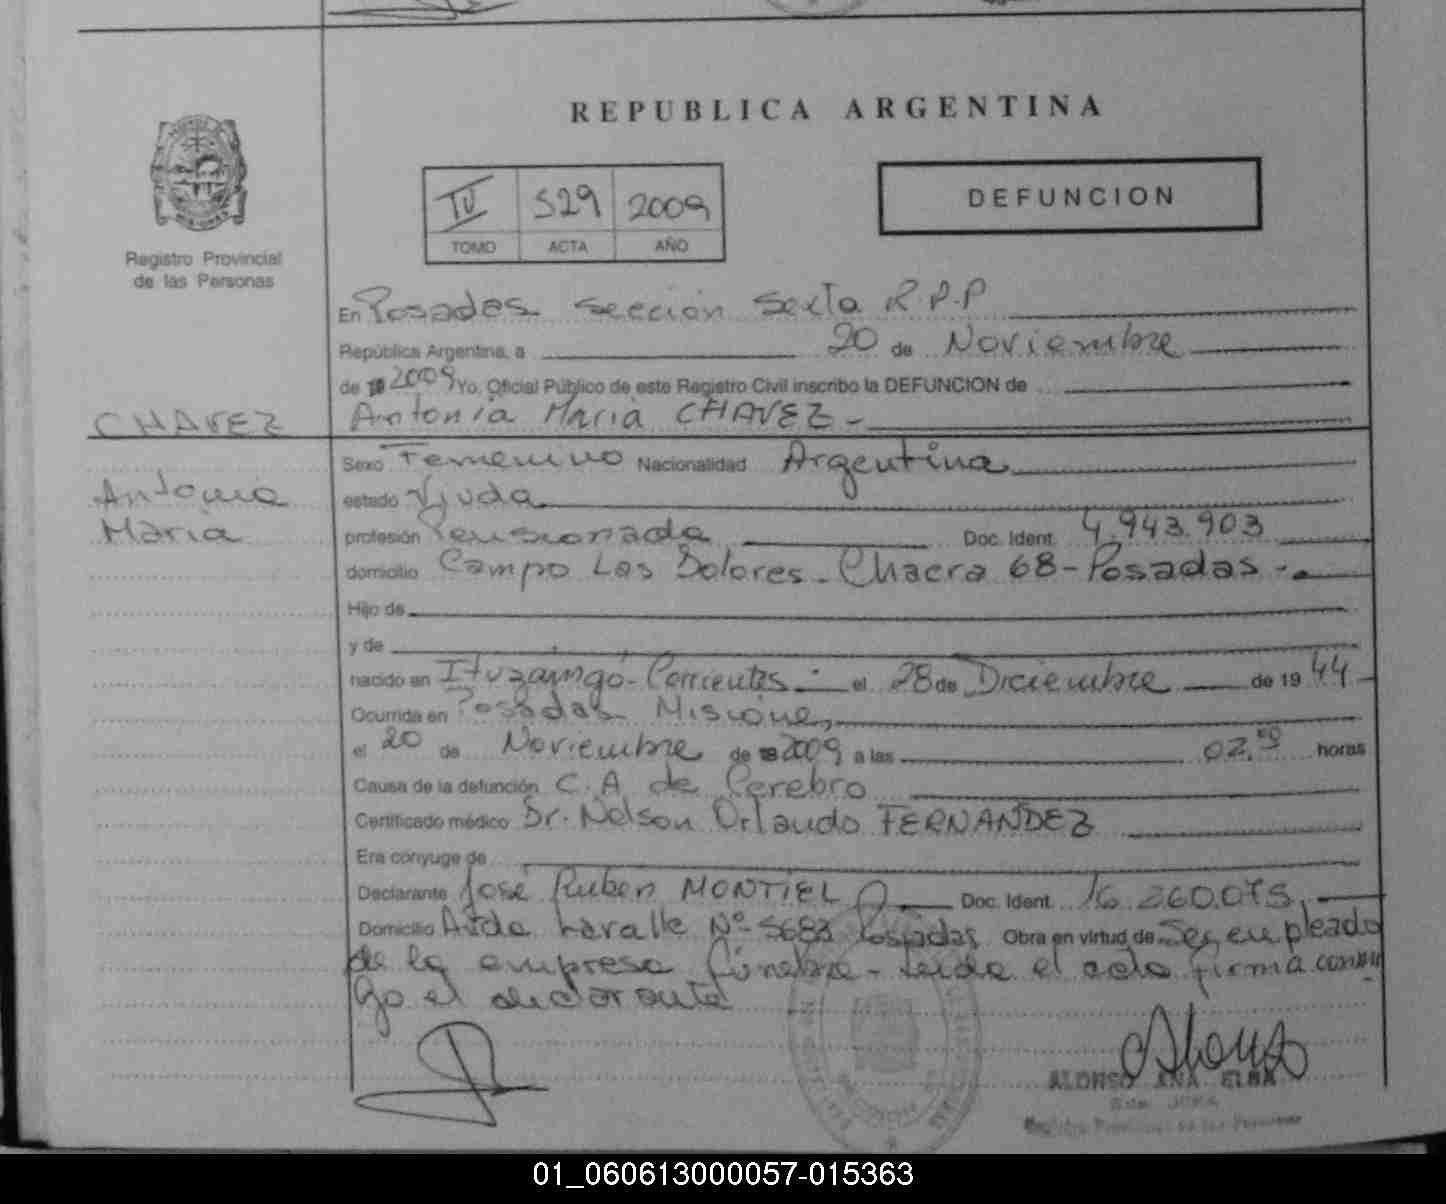 REPUBLICA ARGENTINA
IV 529 2009
TOMO ACTA AÑO
DEFUNCION
Registro Provincial
de las Personas
En Posadas sección Sexta R.P.P
República Argentina, a 20 de Noviembre
de 19 2009 Yo, Oficial Público de este Registro Civil inscribo la DEFUNCION de
CHAVEZ
Antonia María CHAVEZ -
Antonia
María
Sexo Femenino Nacionalidad Argentina
estado Viuda
profesión Pensionada Doc. Ident. 4.943.903
domicilio Campo Las Dolores - Chacra 68 - Posadas -
Hijo de
y de
nacido en Ituzaingó - Corrientes - el 28 de Diciembre de 19 44
Ocurrida en Posadas Misiones
el 20 de Noviembre de 19 2009 a las 02,50 horas
Causa de la defunción C.A de Cerebro
Certificado médico Dr. Nelson Orlando FERNANDEZ
Era cónyuge de
Declarante José Ruben MONTIEL Doc. Ident. 16.260.075
Domicilio Avda Lavalle Nº 5683 Posadas Obra en virtud de Ser empleado
de la empresa fúnebre - Leída el acta firma conmi
go el declarante
ALONSO ANA ELBA
Registro Provincial de las Personas
01_060613000057-015363